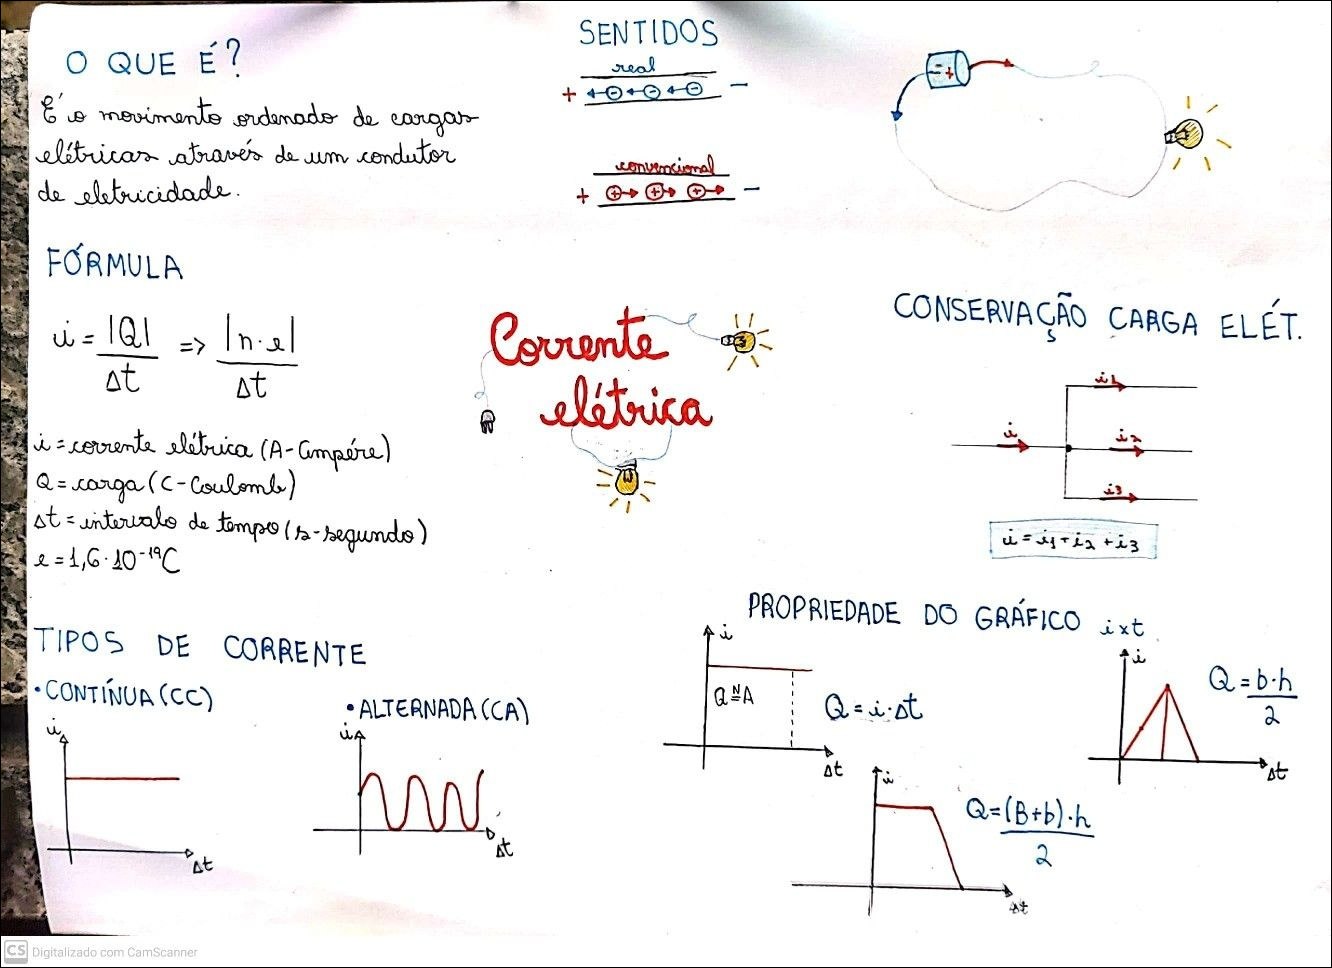 O QUE É?
É o movimento ordenado de cargas
elétricas através de um condutor
de eletricidade.
SENTIDOS
real
+ - - - -
convencional
+ + + + -
- +
FÓRMULA
i = |Q| / Δt => |n·e| / Δt
i = corrente elétrica (A - Ampére)
Q = carga (C - Coulomb)
Δt = intervalo de tempo (s - segundo)
e = 1,6·10⁻¹⁹C
Corrente
elétrica
CONSERVAÇÃO CARGA ELÉT.
i
i1
i2
i3
i = i1 + i2 + i3
TIPOS DE CORRENTE
• CONTÍNUA (CC)
i
Δt
• ALTERNADA (CA)
i
Δt
PROPRIEDADE DO GRÁFICO i x t
i
Q N= A
Δt
Q = i·Δt
i
Δt
Q = b·h / 2
i
Δt
Q = (B+b)·h / 2
CS Digitalizado com CamScanner